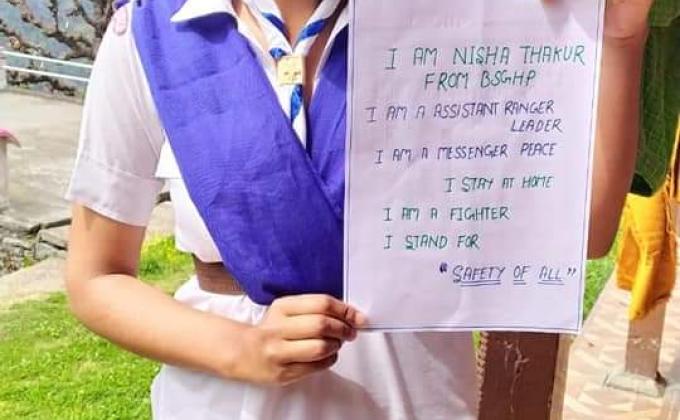 I AM NISHA THAKUR
FROM BSGHP
I AM A ASSISTANT RANGER
LEADER
I AM A MESSENGER PEACE
I STAY AT HOME
I AM A FIGHTER
I STAND FOR
"SAFETY OF ALL"